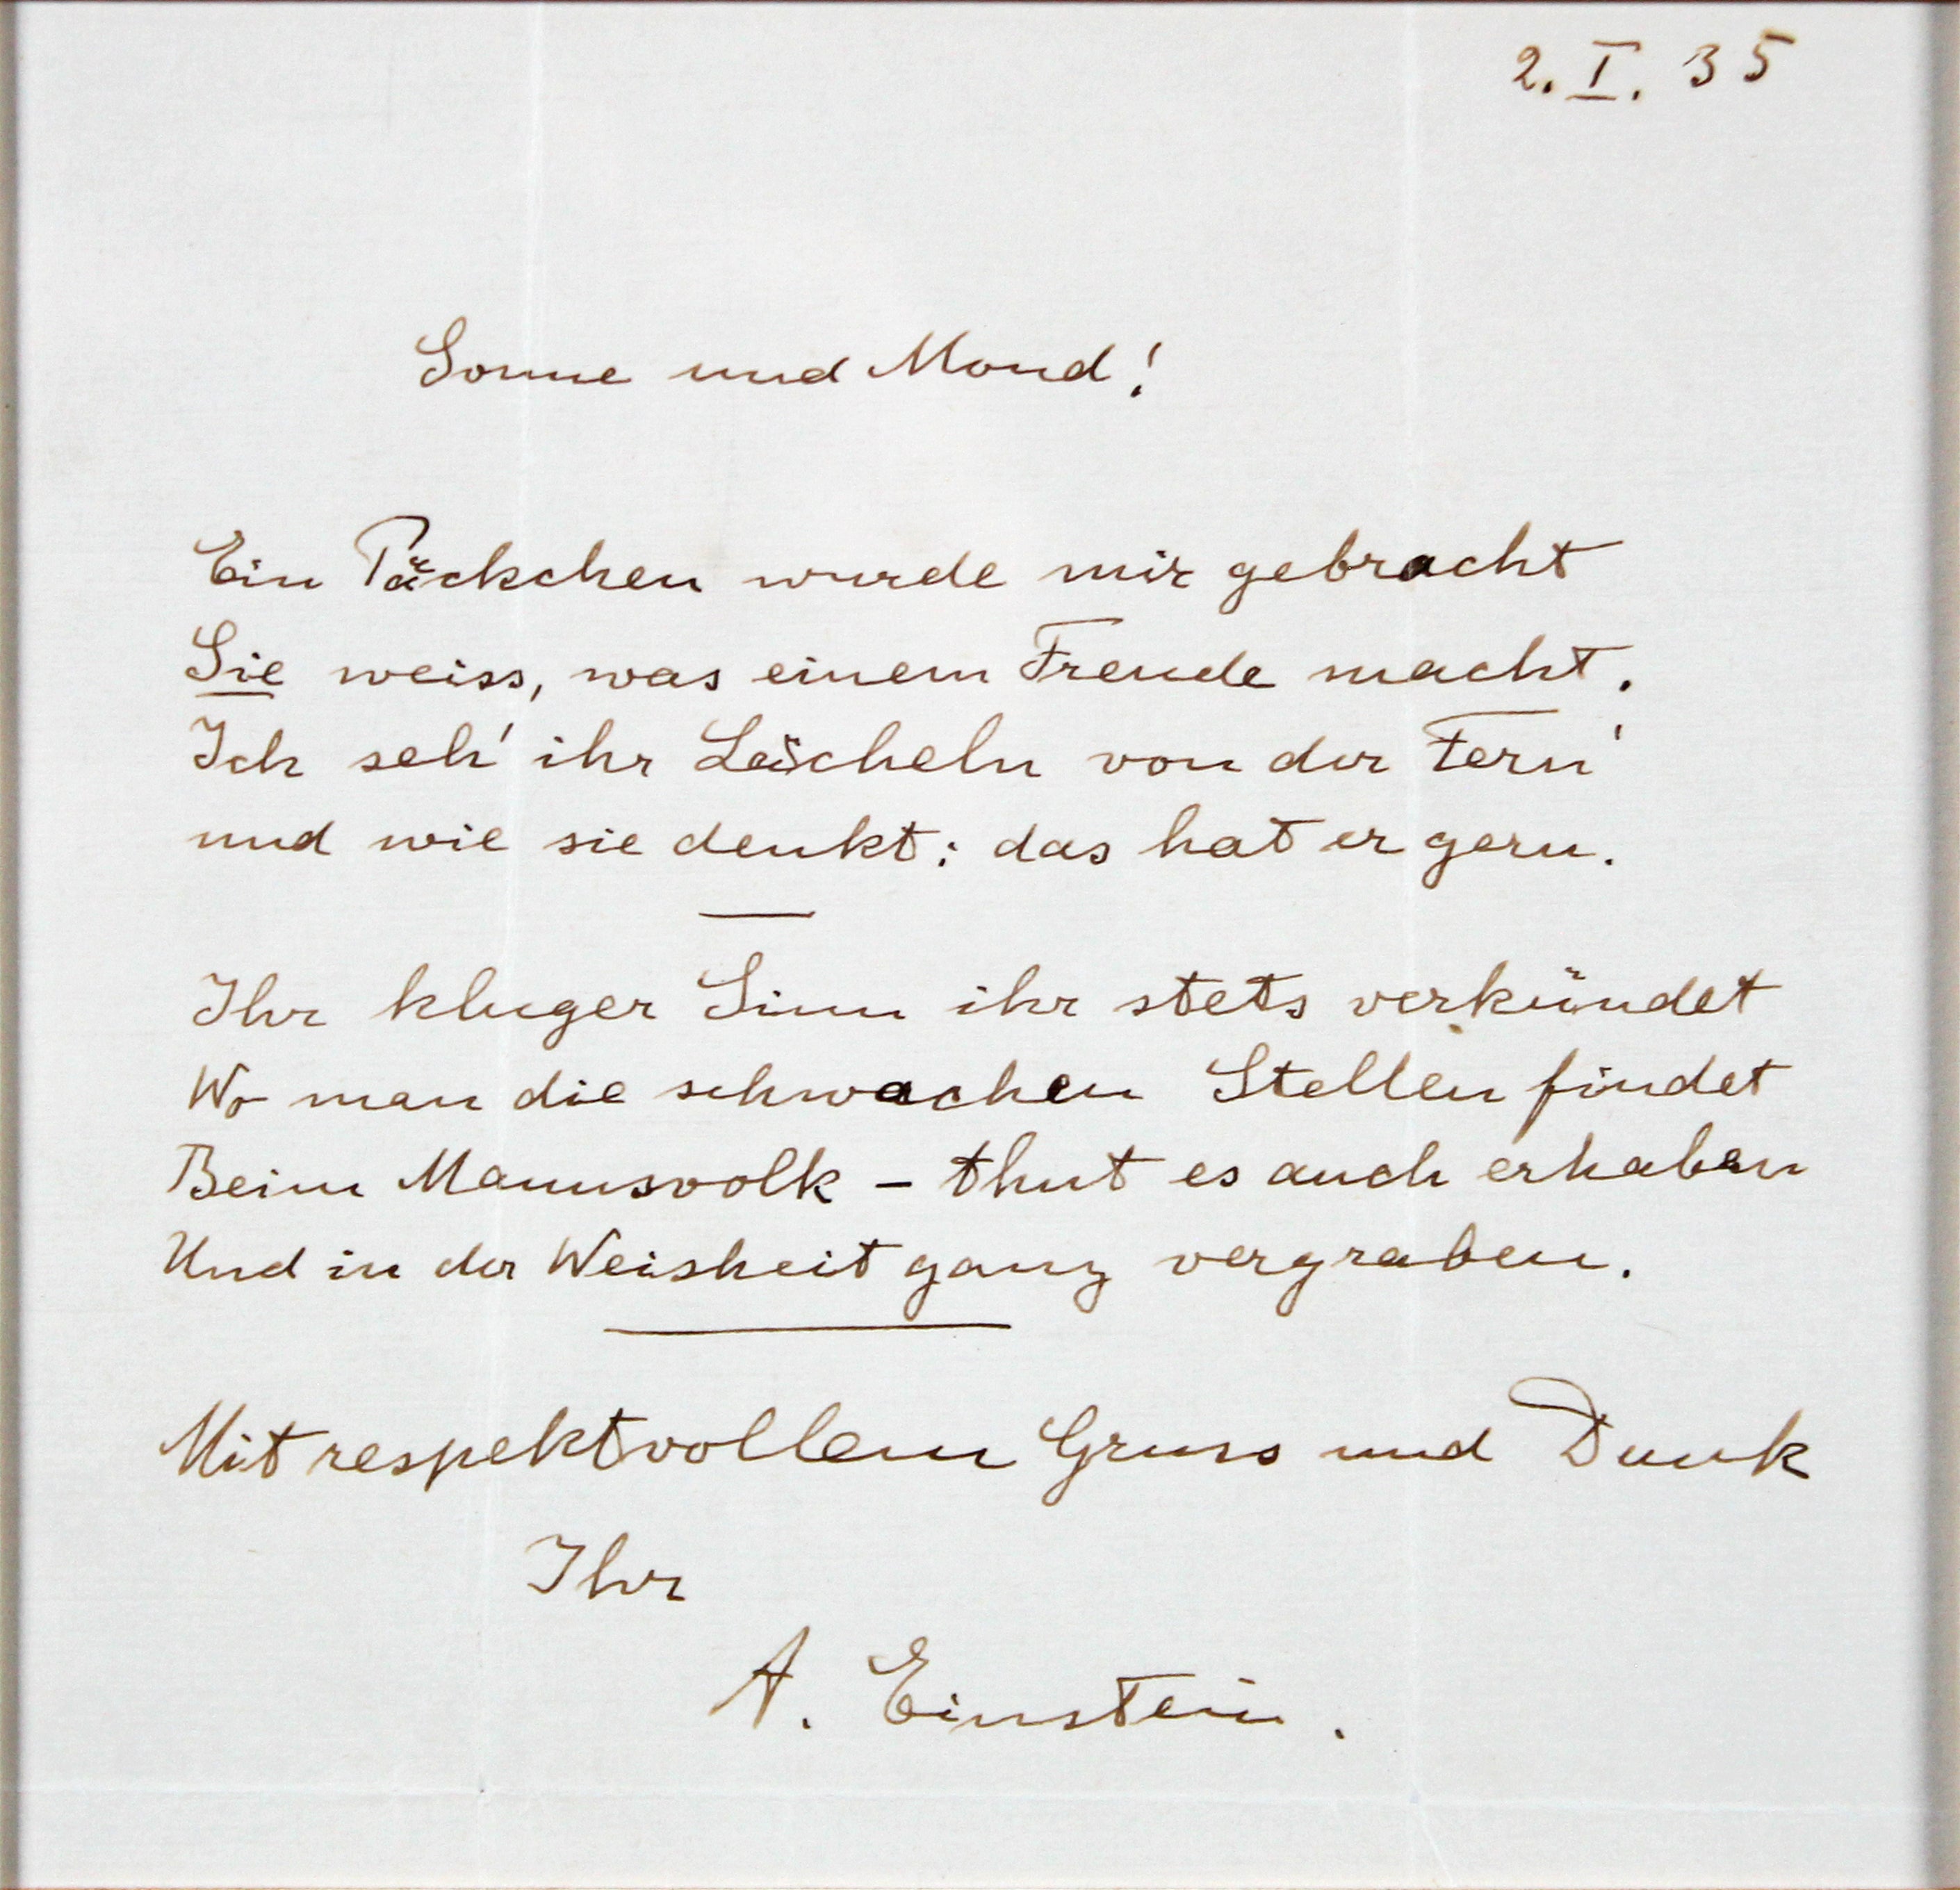 2. I. 35
Sonne und Mond!
Ein Päckchen wurde mir gebracht
Sie weiss, was einem Freude macht.
Ich seh' ihr Lächeln von der Fern'
und wie sie denkt: das hat er gern.
Ihr kluger Sinn ihr stets verkündet
Wo man die schwachen Stellen findet
Beim Mannsvolk – thut es auch erhaben
Und in der Weisheit ganz vergraben.
Mit respektvollem Gruss und Dank
Ihr
A. Einstein.